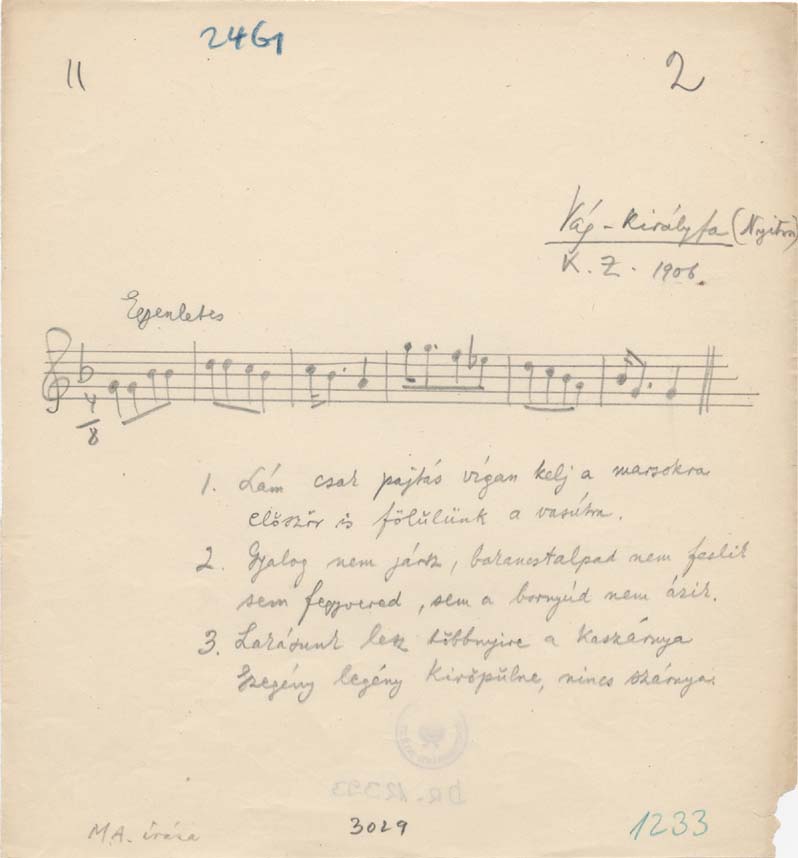 246,
11
2
Vág-Királyfa (Nyitra)
K. Z. 1906.
Egyenletes
4
8
1. Lám csak pajtás vígan kelj a marsokra
először is fölülünk a vasútra.
2. Gyalog nem jársz, bakancstalpad nem feslik
sem fegyvered, sem a bornyúd nem ázik.
3. Lakásunk lesz többnyire a kaszárnya
Szegény legény kiröpülne, nincs szárnya.
DR. 12393
M.A. írása
3029
1233